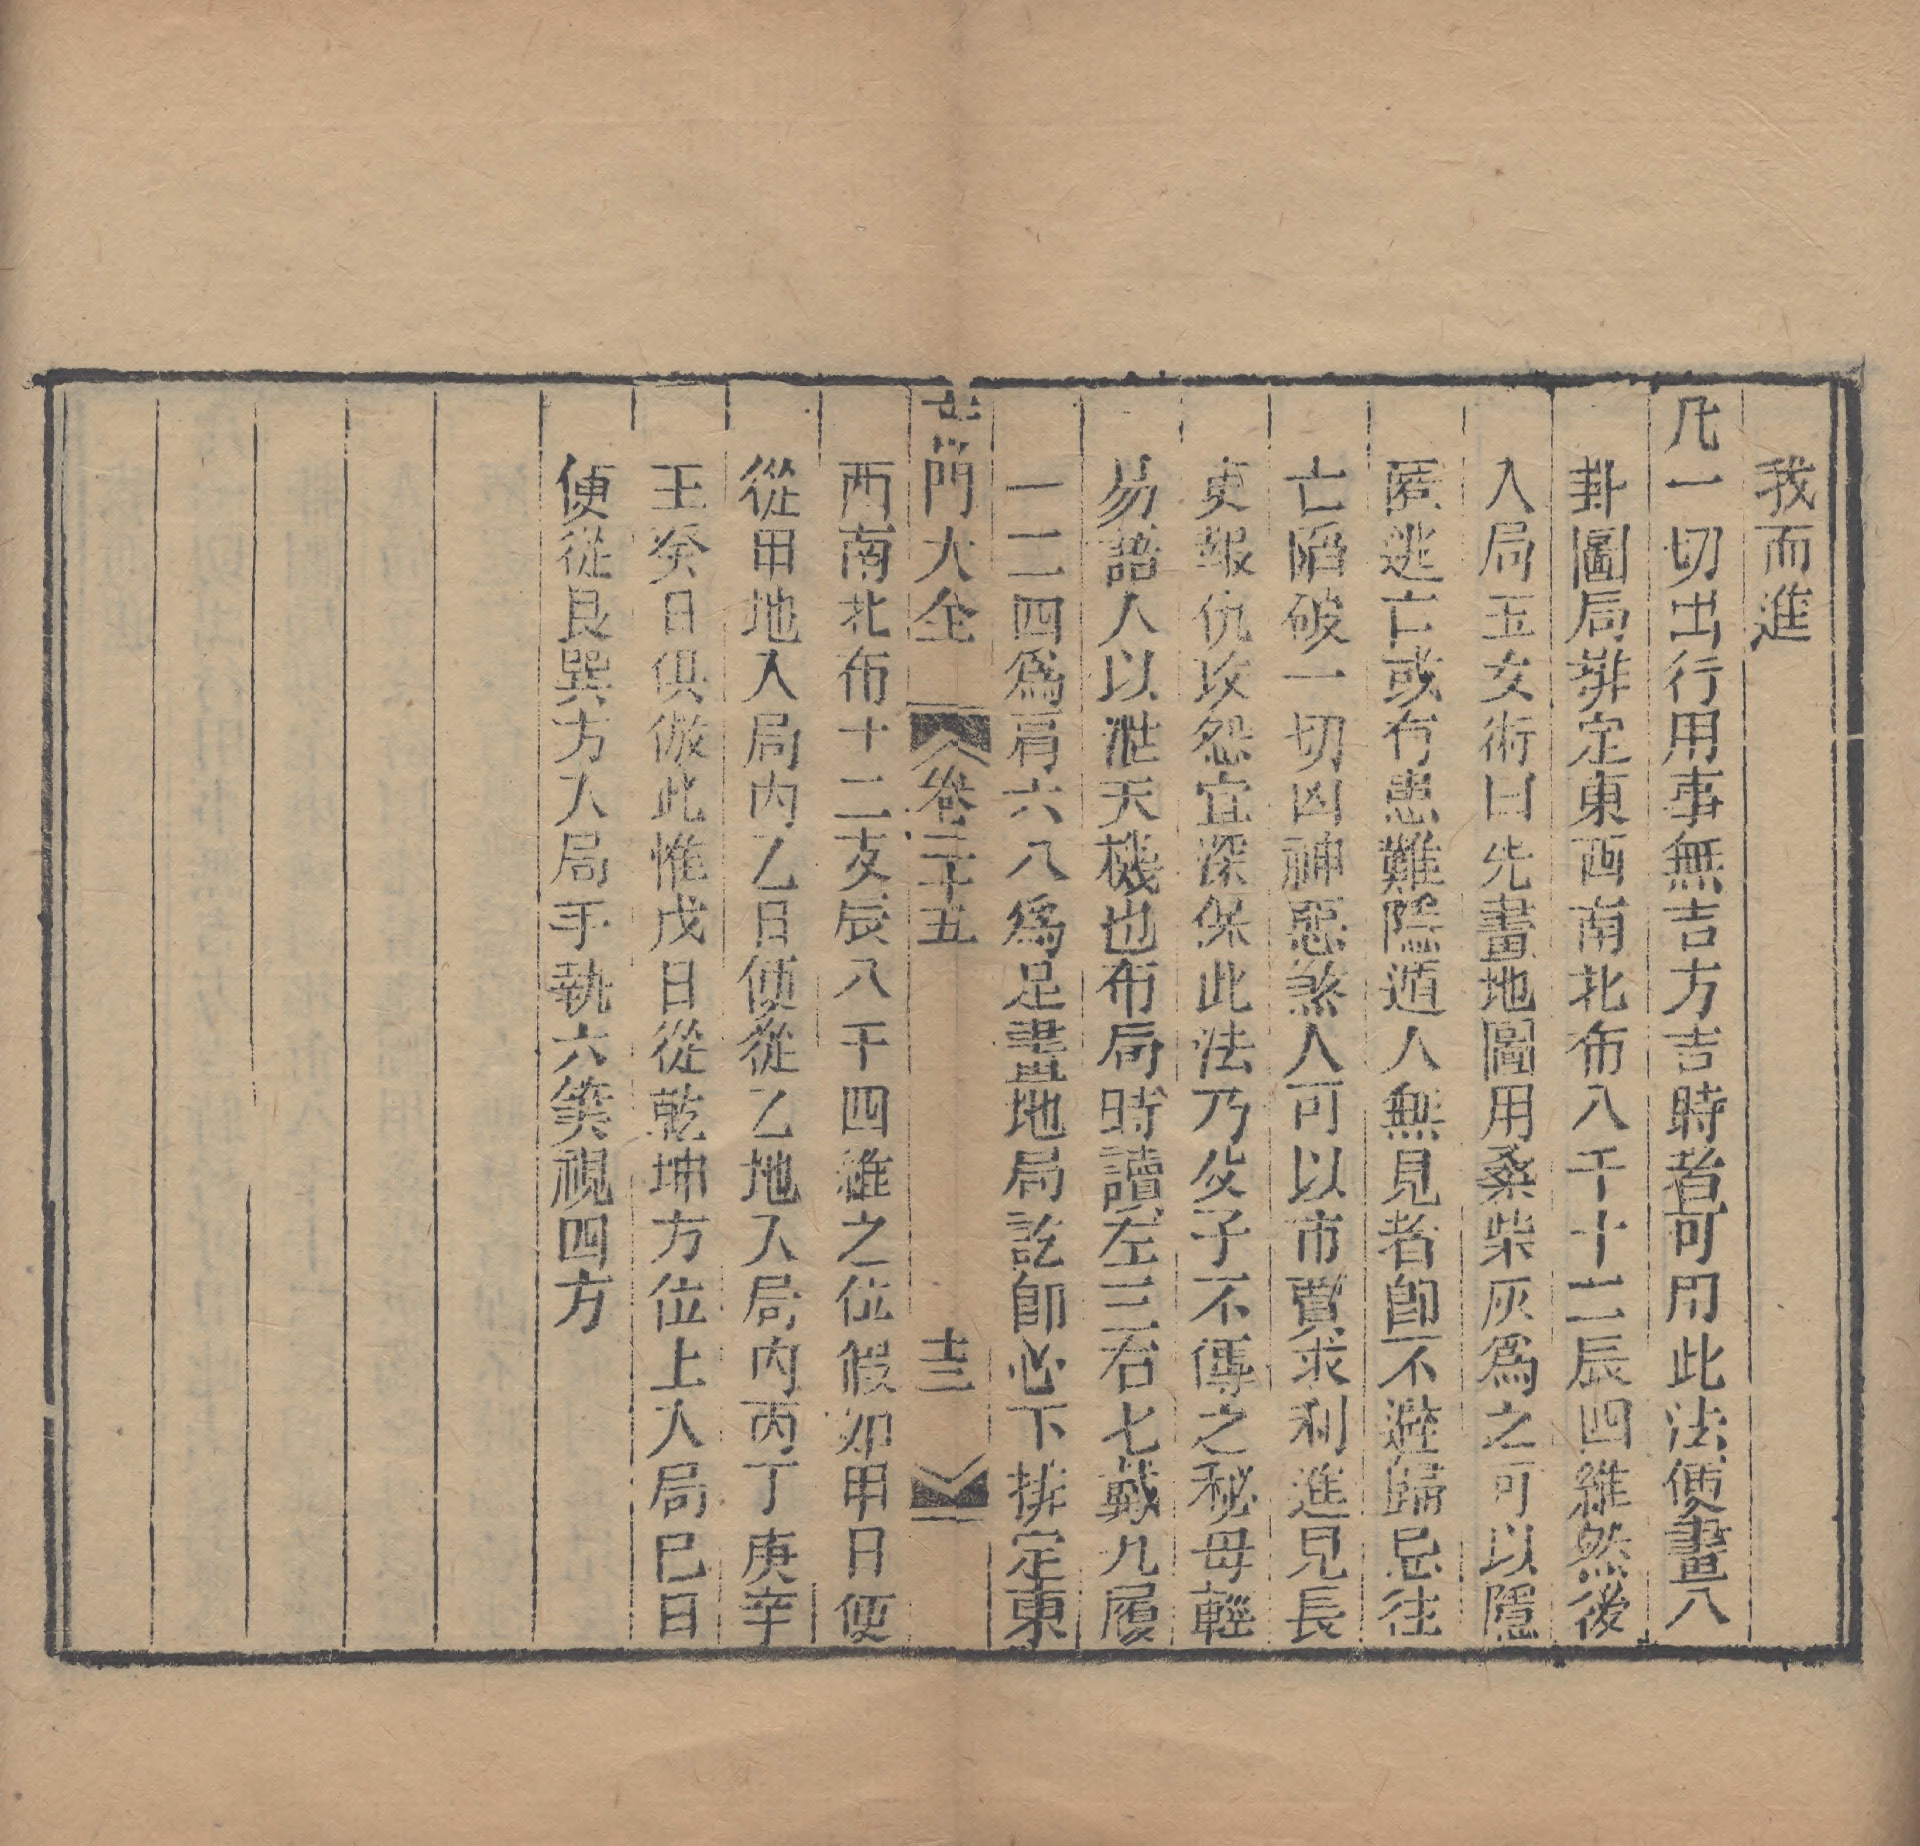 我而進
凡一切出行用事無吉方吉時者可用此法便畫八
卦圖局排定東西南北布八千十二辰四維然後
入局玉女術曰先畫地圖用桑柴灰為之可以隱
匿逃亡或有患難隱遁人無見者卽不避歸忌往
亡陷破一切凶神惡煞人可以市賈求利進見長
吏報仇攻怨宜深保此法乃父子不傳之秘毋輕
易語人以泄天機也布局時讀左三右七戴九履
一二四為肩六八為足畫地局訖卽必下排定東
奇門大全 卷二十五 十三
西南北布十二支辰八干四維之位假如甲日便
從甲地入局內乙日便從乙地入局內丙丁庚辛
壬癸日俱倣此惟戊日從乾坤方位上入局巳日
便從艮巽方入局手執六筭視四方